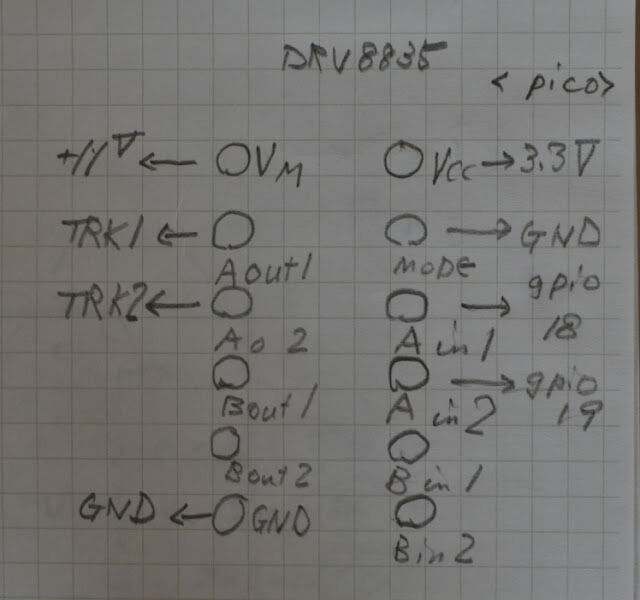 DRV8835
<pico>
+11V ← VM VCC → 3.3V
TRK1 ← Aout1 MODE → GND
TRK2 ← Ao2 Ain1 → gpio 18
Bout1 Ain2 → gpio 19
Bout2 Bin1
GND ← GND Bin2